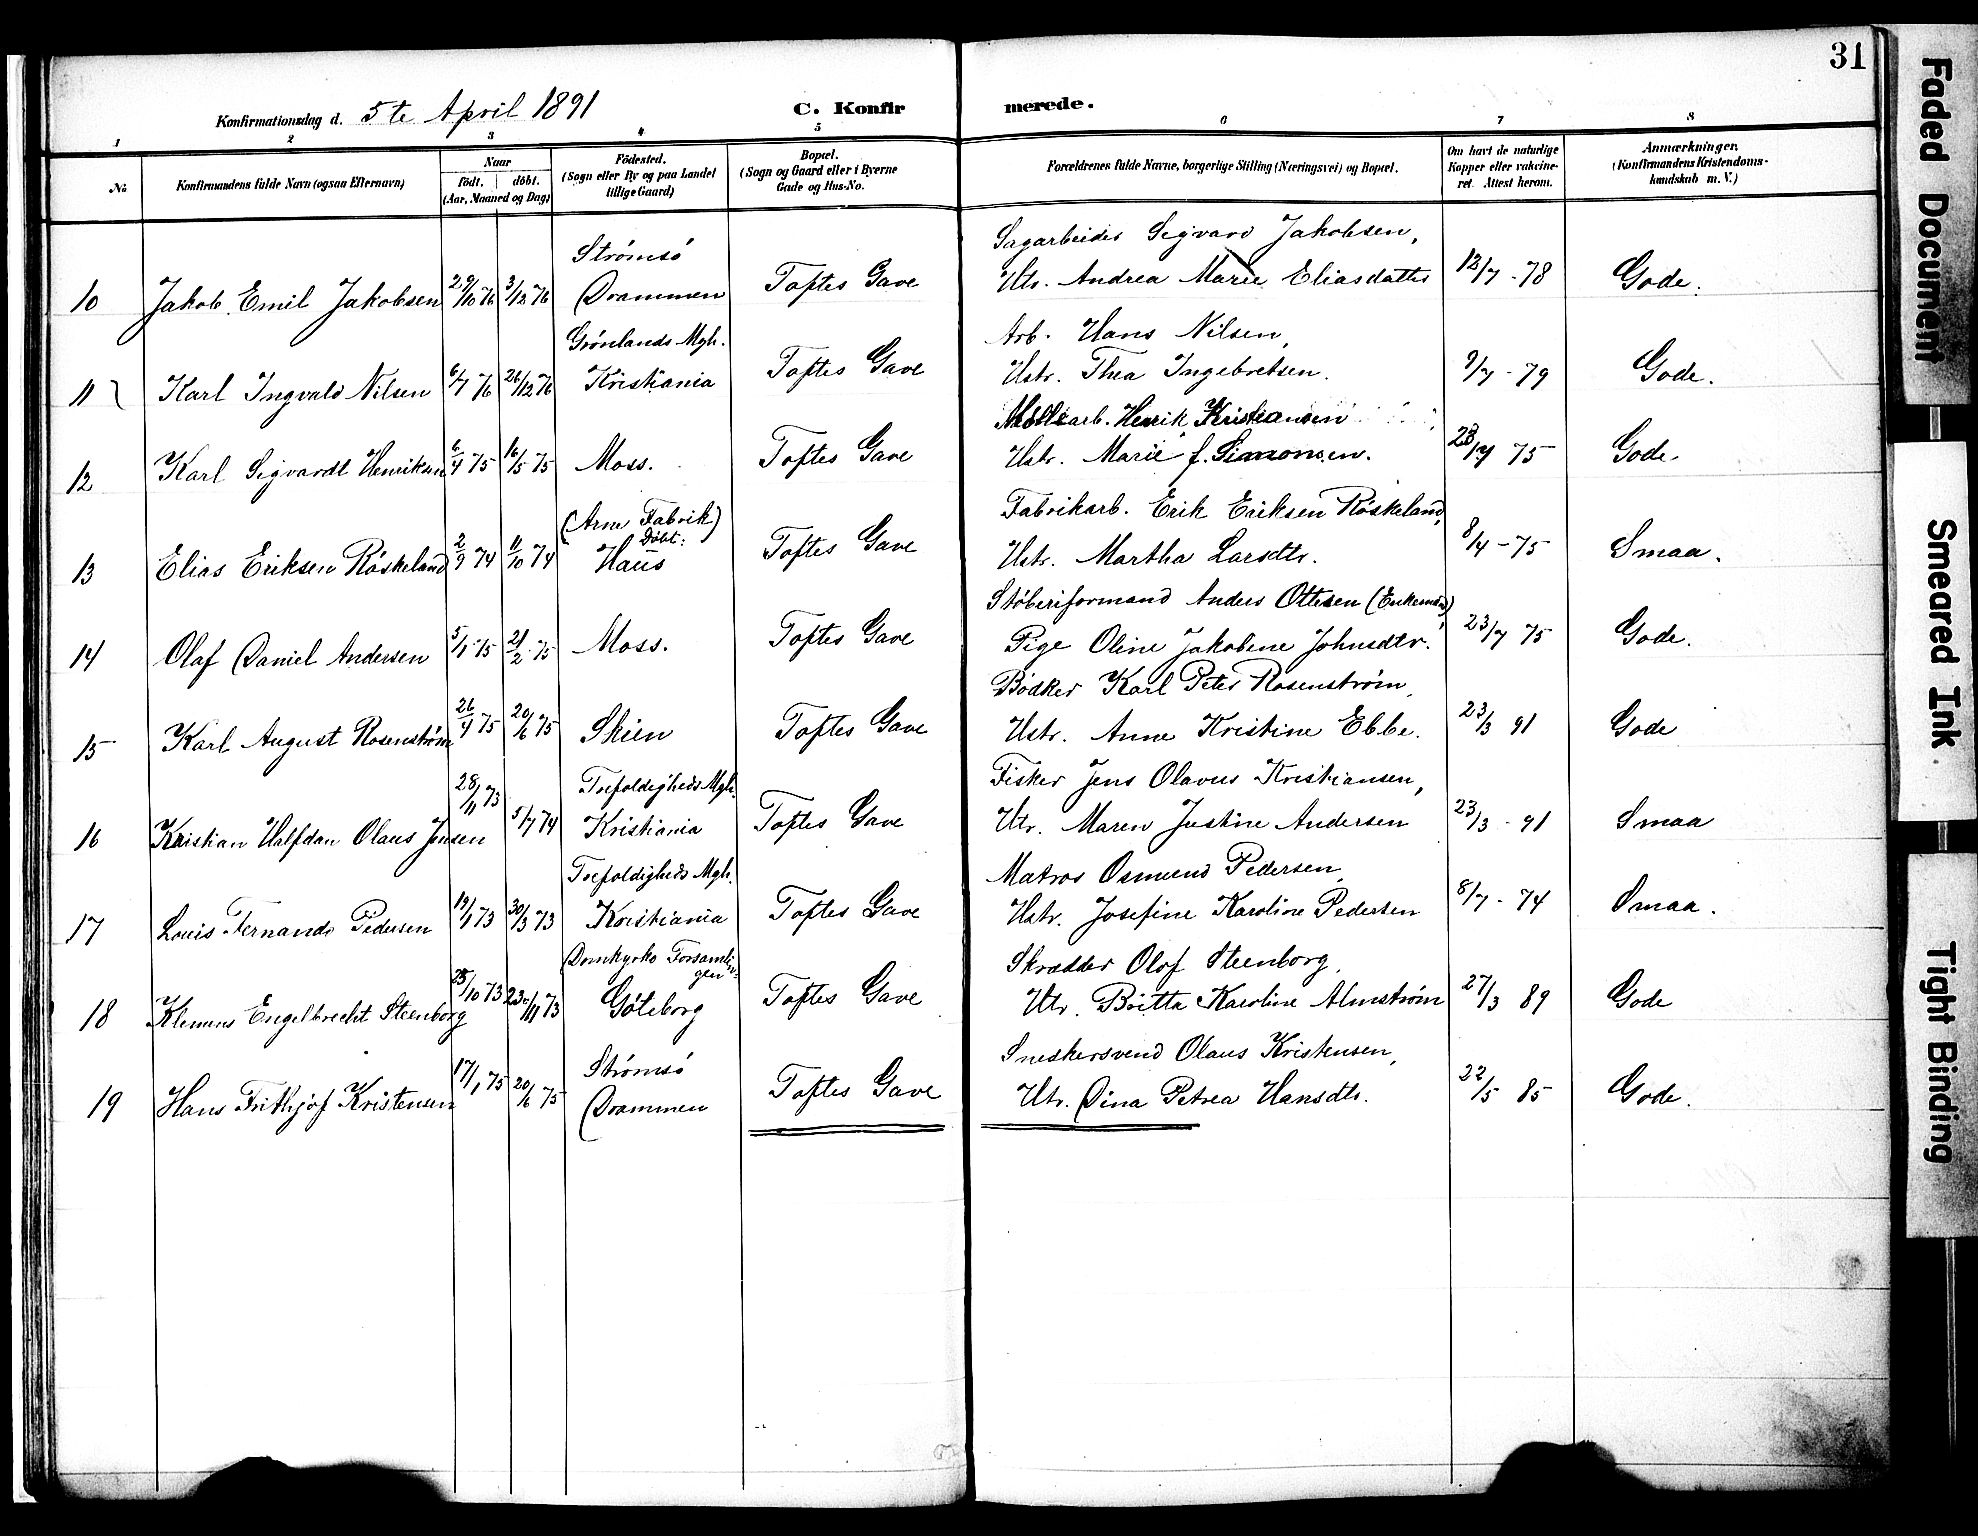 31
Konfirmationsdag d. 5te April 1891
C. Konfirmerede.
1 2 3 4 5 6 7 8
No
Konfirmandens fulde Navn (ogsaa Efternavn)
Naar
födt. döbt.
(Aar, Maaned og Dag)
Födested.
(Sogn eller By og paa Landet
tillige Gaard)
Bopæl.
(Sogn og Gaard eller i Byerne
Gade og Hus-No.
Forældrenes fulde Navne, borgerlige Stilling (Næringsvei) og Bopæl.
Om havt de naturlige
Kopper eller vakcine-
ret. Attest herom.
Anmærkninger.
(Konfirmandens Kristendoms-
kundskab m. V.)
Strømsö Sagarbeider Sigvard Jakobsen,
10 Jakob Emil Jakobsen 29/10 76 3/12 76 Drammen Toftes Gave Utr. Andrea Marie Eliasdatter 12/7 - 78 Gode.
Grönlands Mgh. Arb. Hans Nilsen,
11 Karl Ingvald Nilsen 6/7 76 26/12 76 Kristiania Toftes Gave Ustr. Thea Ingebretsen. 9/7 - 79 Gode.
arb. Henrik Kristiansen
12 Karl Sigvardt Henriksen 6/4 75 16/5 75 Moss. Toftes Gave Ustr. Marie f. Simonsen. 23/7 75 Gode.
(Arne Fabrik) Fabrikarb. Erik Eriksen Röskeland,
Döbt:
13 Elias Eriksen Röskeland 2/9 74 11/10 74 Haus Toftes Gave Ustr. Martha Larsdtr. 8/4 - 75 Smaa.
Stöberiformand Anders Ottesen (Enkemand),
14 Olaf Daniel Andersen 5/1 - 75 21/2 - 75 Moss. Toftes Gave Pige Oline Jakobine Johnsdtr. 23/7 75 Gode.
Bödker Karl Peter Rosenström,
15 Karl August Rosenström 26/4 75 20/6 75 Skien Toftes Gave Ustr. Anne Kristine Ebbe. 23/3 91 Gode
Trefoldigheds Mgh. Fisker Jens Olavus Kristiansen,
16 Kristian Halfdan Olaus Jensen 28/11 73 5/7 74 Kristiania Toftes Gave Utr. Maren Justine Andersen 23/3 - 91 Smaa
Trefoldigheds Mgh. Matros Osmund Pedersen,
17 Louis Fernando Pedersen 19/1 73 30/3 73 Kristiania Toftes Gave Ustr. Josefine Karoline Pedersen 8/7 - 74 Smaa.
Domkyrko Forsamlin- Skrædder Olof Steenborg,
gen
18 Klemens Engelbrecht Steenborg 25/10 73 23/11 73 Göteborg Toftes Gave Utr. Britta Karoline Almström 27/3 89 Gode
Strømsö Snekersvend Olaus Kristensen,
19 Hans Frithjof Kristensen 17/1 75 20/6 75 Drammen Toftes Gave Utr. Dina Petrea Hansdtr. 22/5 85 Gode.
Faded Document
Smeared Ink
Tight Binding